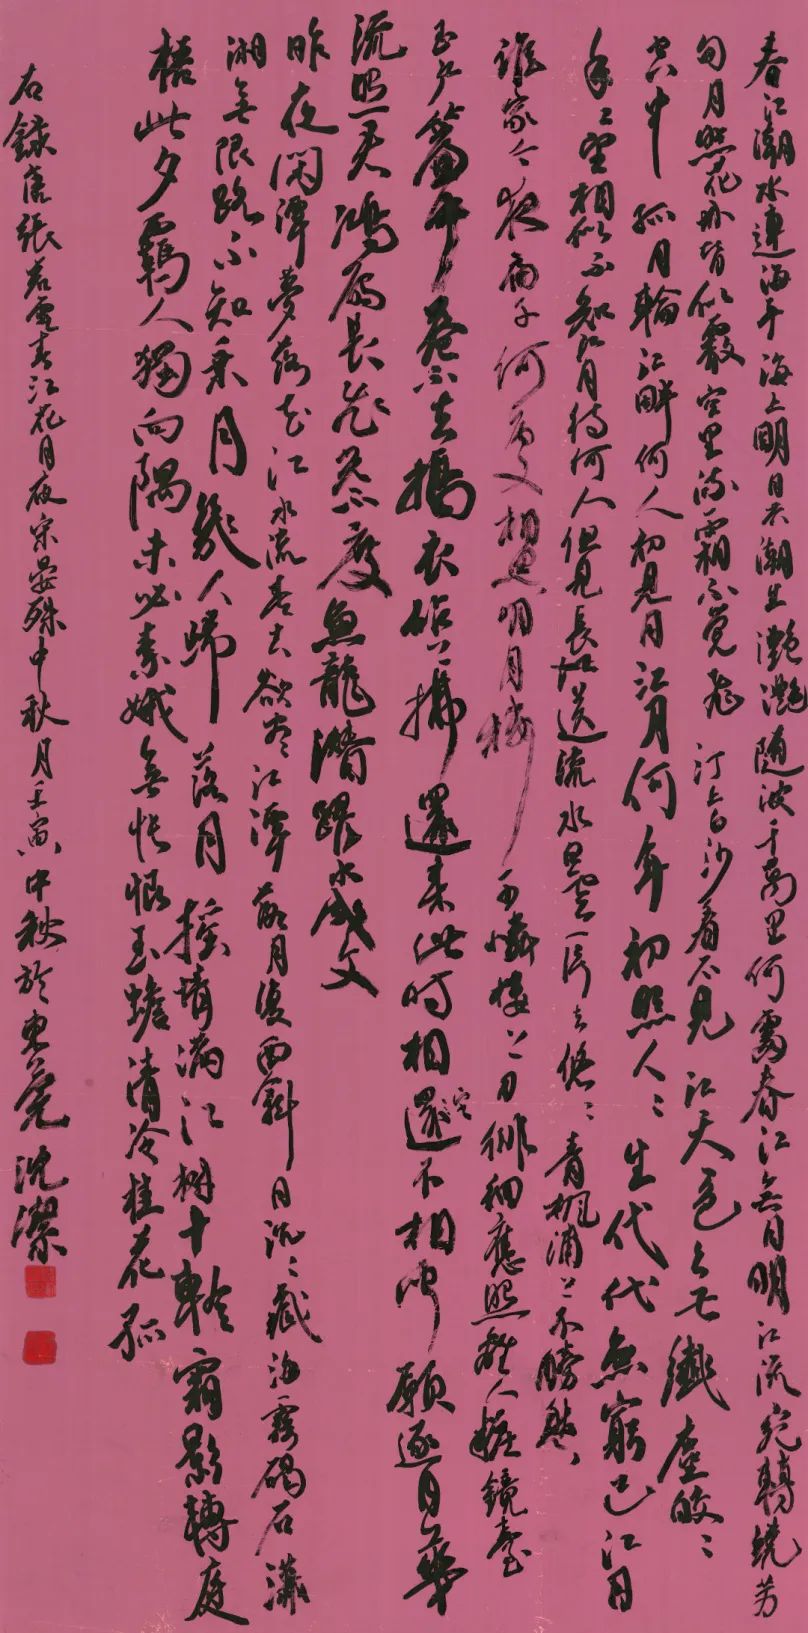 春江潮水連海平海上明月共潮生灩灩随波千萬里何處春江無月明江流宛轉繞芳
甸月照花林皆似霰空里流霜不覺飛汀上白沙看不見江天一色無纖塵皎〻
空中孤月輪江畔何人初見月江月何年初照人〻生代代無窮已江月
年〻望相似不知江月待何人但見長江送流水白雲一片去悠〻青楓浦上不勝愁
誰家今夜扁子何處相思明月樓可憐樓上月徘徊應照離人妝鏡臺
玉户簾中卷不去搗衣砧上拂還来此時相還不相聞願逐月華
流照君鴻雁長飛光不度魚龍潜躍水成文
昨夜閑潭夢落花江水流春去欲盡江潭落月復西斜月沉〻藏海霧碣石瀟
湘無限路不知乘月幾人歸落月摇情滿江樹十輪霜影轉庭
梧此夕羈人獨向隅未必素娥無悵恨玉蟾清冷桂花孤
右錄唐張若虚春江花月夜宋晏殊中秋月壬寅中秋於東莞沈潔